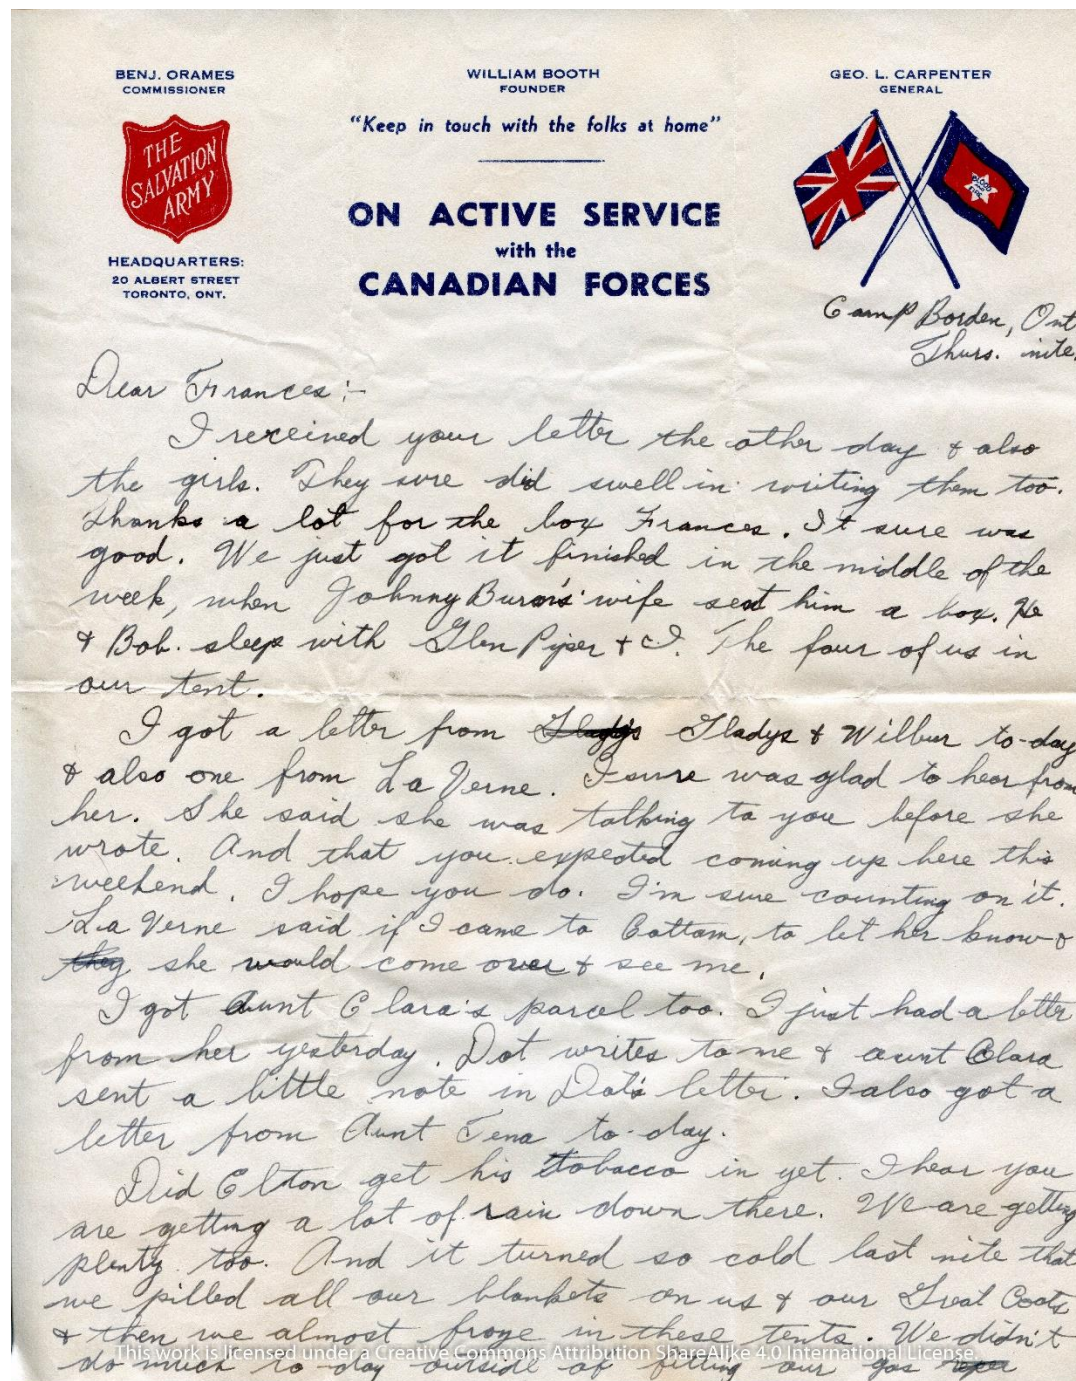 BENJ. ORAMES
COMMISSIONER
THE
SALVATION
ARMY
HEADQUARTERS:
20 ALBERT STREET
TORONTO, ONT.
WILLIAM BOOTH
FOUNDER
"Keep in touch with the folks at home"
ON ACTIVE SERVICE
with the
CANADIAN FORCES
GEO. L. CARPENTER
GENERAL
BLOOD
FIRE
Camp Borden, Ont
Thurs. nite.
Dear Frances:-
I received your letter the other day & also
the girls. They sure did swell in writing them too.
Thanks a lot for the box Frances. It sure was
good. We just got it finished in the middle of the
week, when Johnny Burns' wife sent him a box. He
& Bob. sleep with Glen Piper & I. The four of us in
our tent.
I got a letter from Gladys Gladys & Wilbur to-day
& also one from La Verne. I sure was glad to hear from
her. She said she was talking to you before she
wrote. And that you expected coming up here this
weekend. I hope you do. I'm sure counting on it.
La Verne said if I came to Cottam, to let her know &
they she would come over & see me.
I got Aunt Clara's parcel too. I just had a letter
from her yesterday. Dot writes to me & aunt Clara
sent a little note in Dot's letter. I also got a
letter from Aunt Tena to-day.
Did Elton get his tobacco in yet. I hear you
are getting a lot of rain down there. We are getting
plenty too. And it turned so cold last nite that
we pilled all our blankets on us & our Great Coats
& then we almost froze in these tents. We didn't
do much to-day outside of fitting our gas
This work is licensed under a Creative Commons Attribution ShareAlike 4.0 International License.